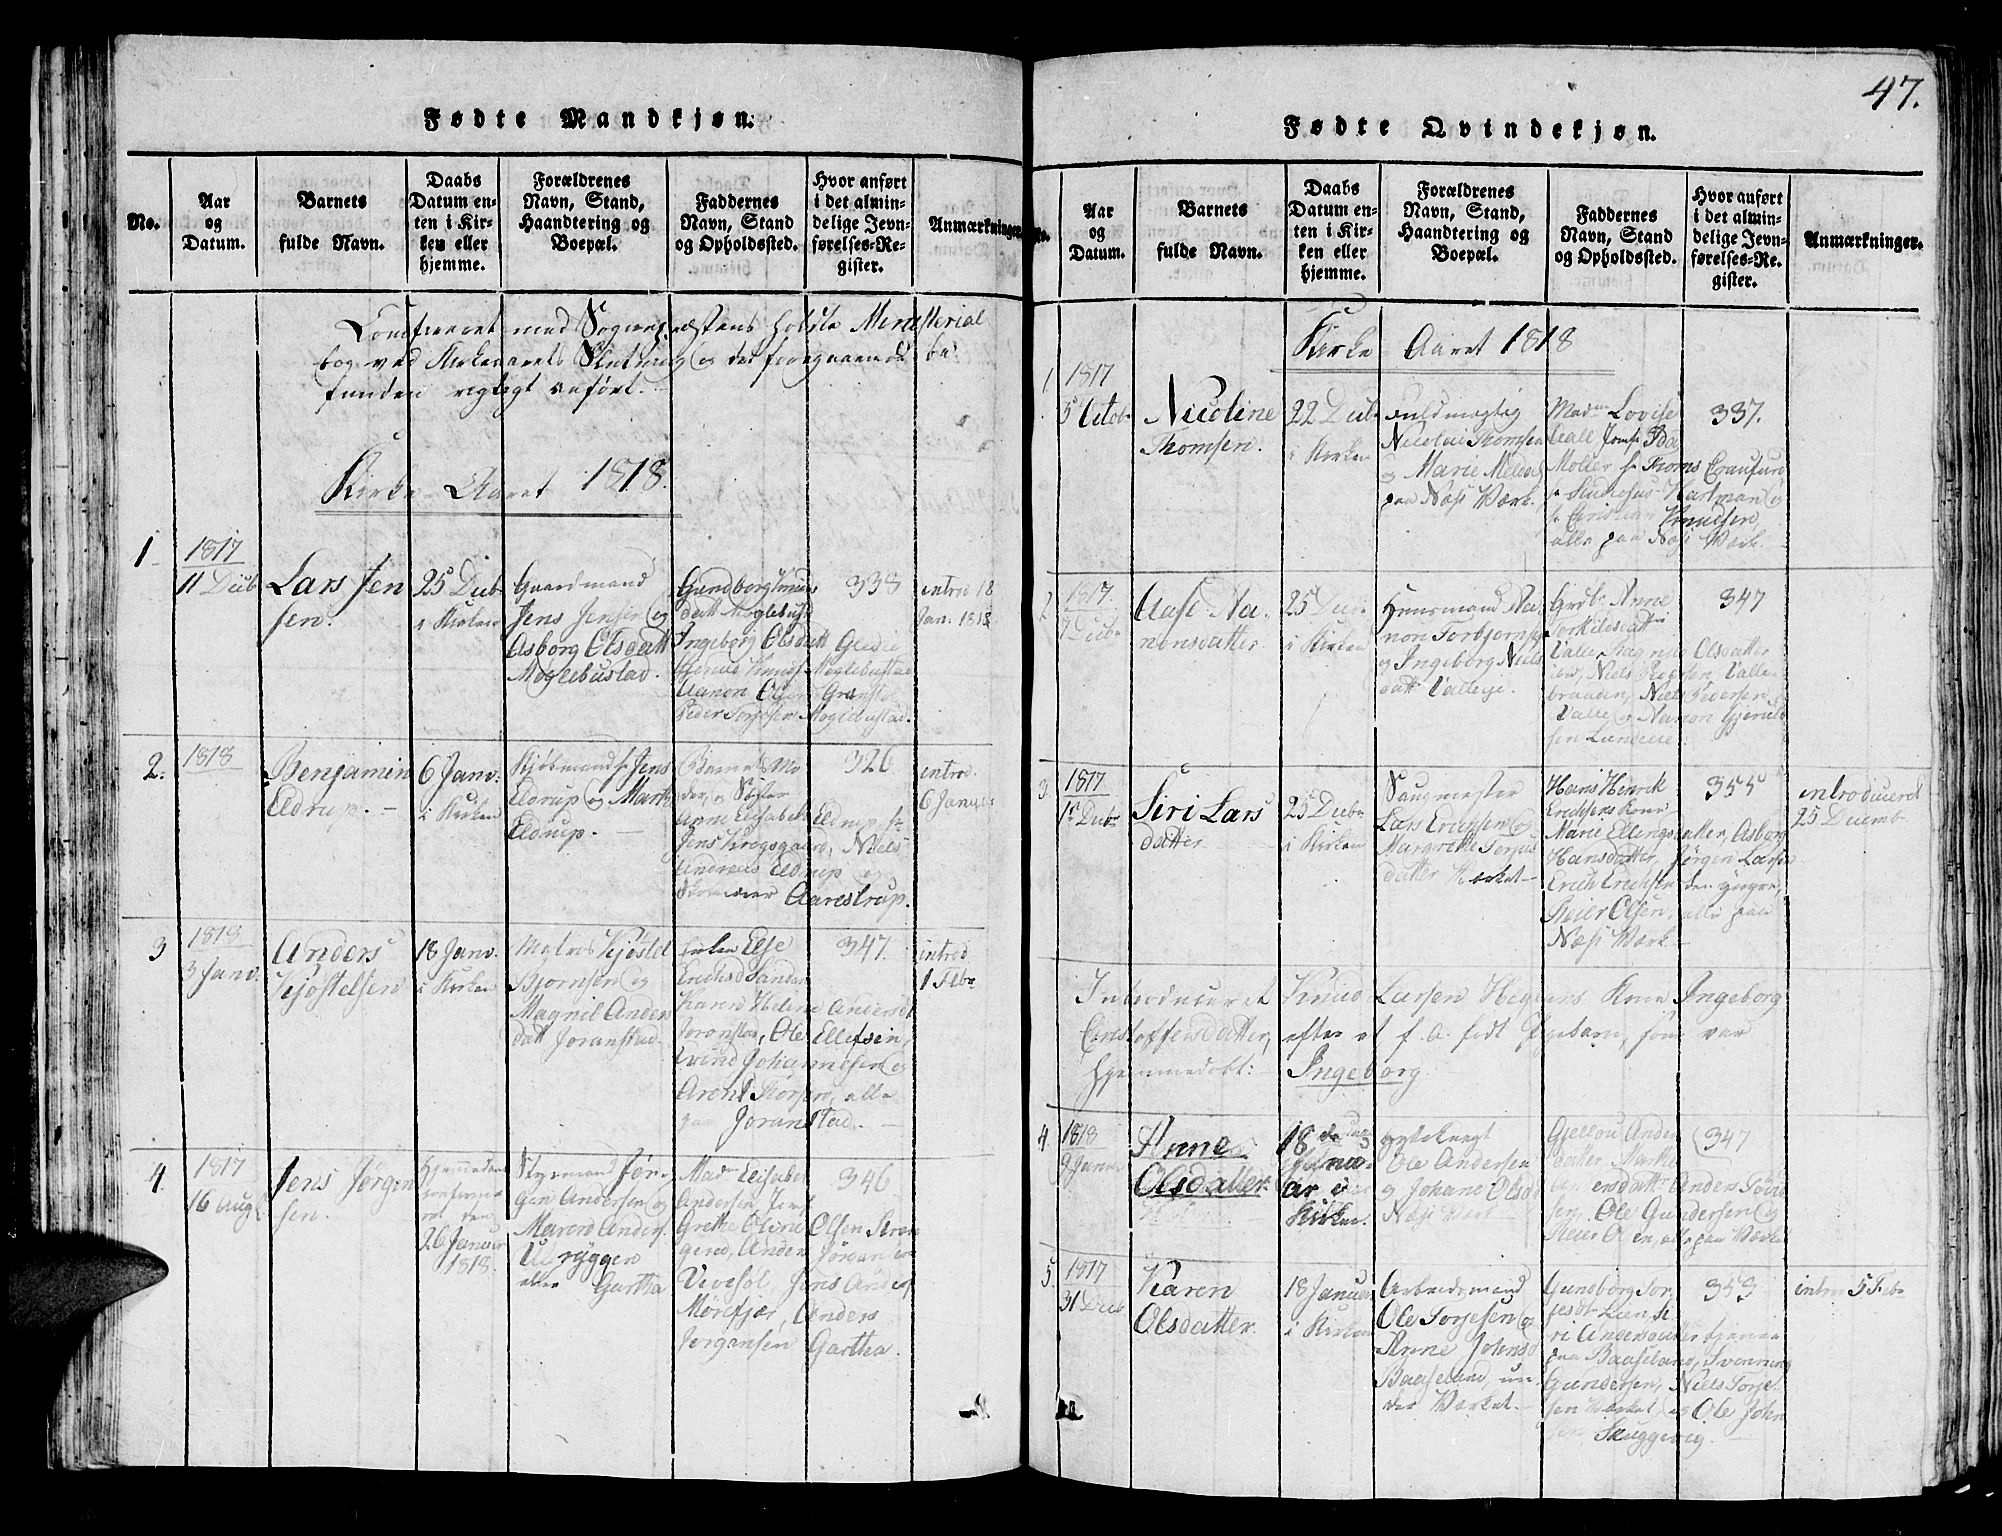 Fødte Mandkjøn.
No.
Aar
og
Datum.
Barnets
fulde Navn.
Daabs
Datum en-
ten i Kir-
ken eller
hjemme.
Forældrenes
Navn, Stand,
Haandtering og
Boepæl.
Faddernes
Navn, Stand
og Opholdssted.
Hvor anført
i det almin-
delige Jevn-
førelses-Re-
gister.
Anmærkninger.
Confereret med Sognepræstens holdte Ministerial
bog ved Kirkeaarets Slutning og det foregaaende be-
funden rigtigt anført.
Kirke-Aaret 1818.
1
1817
11 Decb
Lars Jen
sen.
25 Decb
i Kirken
Gaardmand
Jens Jensen og
Asborg Olsdatt
Møglebustad.
Gundborg Knuds
datt Møglebustd
Ingeborg Olsdatt
Aanon Olsen
Peder Torjesen Moglebustad.
338
introd 18
Jan. 1818
2.
1818
Benjamin
Eldrup.
6 Janv.
i Kirken
Kjøbmand Hr Jens
Eldrup og Marthe
Eldrup.
Barnets Mo
der, og Søster
Anne Elisabeth Eldrup, Hr
Jens Krogsgaard, Niels
Andreas Eldrup og
Aarestrup.
326
introd.
6 Januar
3
1818
3 Janv.
Anders
Kjøstelsen
18 Janv.
i Kirken
Matros Kjøstel
Bjornsen og
Magnil Anders
datt Joranstad
Enken Else
Erichsd Sandar
Karen Helene Andersd
Joranstad, Ole Ellefsen,
Evind Johannesen og
Arent Thorsen, alle
paa Joranstad.
347.
introd
1 Febr
4.
1817
16 Aug
Jens Jørgen
sen.
Hjemmedøbt
confirme-
ret den
26 Januar
1818.
Styrmand Jør-
gen Andersen og
Maren Anders
Ulryggen
eller Gartha
Madm Elisabeth
Andersen Jomf
Grethe Oline Olsen Stren
gered, Anders Jørgensen
Vevesøl, Jens Anders
Mørefjær, Anders
Jørgensen Gartha.
346
47.
Fødte Qvindekjøn.
No.
Aar
og
Datum.
Barnets
fulde Navn.
Daabs
Datum en-
ten i Kir-
ken eller
hjemme.
Forældrenes
Navn, Stand,
Haandtering og
Boepæl.
Faddernes
Navn, Stand
og Opholdssted.
Hvor anført
i det almin-
delige Jevn-
førelses-Re-
gister.
Anmærkninger.
Kirke-Aaret 1818
1.
1817
5 Octob
Nicoline
Thomsen.
22 Decb
i Kirken
Fuldmægtig
Nicolai Thomsen
og Marie Meldal
paa Næss Værk.
Madm Lovise
Aall Jomfr Ida
Møller Hr Thoms Craufurd
Hr Hartman og
Hr Christian Knudsen,
alle paa Næss Værk
337.
2
1817
7 Decb
Aase Aa-
nonsdatter
25 Decb
i Kirken
Huusmand Aa-
non Torbjørns
og Ingeborg Niels
datt Valleeje.
Grdb. Anne
Torkildsdatter
Valle Ragnild Olsdatter
ibid, Niels Pedersen, Valle
braaden, Niels Pedersen
Valle og Aanon Gjeruld
sen Lundeeie.
347
3
1817
1st Decb
Siri Lars
datter
25 Decb
i Kirken
Saugmester
Lars Erichsen og
Margrethe Torjus
datter Værket
Hans Henrick
Erichsens Kone
Marie Ellingsdatter, Asborg
Hansdatter, Jørgen Larsen
Erich Erichsen den yngre,
Reier Olsen, alle paa
Næss Værk
355
introduceret
25 Decemb
Introduceret Knud Larsen Heglens Kone Ingeborg
Christoffersdatter, efter et f. a. født Pigebarn, som var
hjemmedøbt: Ingeborg
4.
1818
9 Janv
Anne
Olsdatter
18 de
Janu-
ar i
Kirken.
Ole Andersen
og Johane Olsd
Næss Værk
Gjellou Anders
datter Marthe
Andersdatter Anders Tønne
sen, Ole Gundersen og
Reier Olsen, alle paa Værket
347
5.
1817
31 Decb
Karen
Olsdatter
18 Januar
i Kirken
Arbeidsmand
Ole Torjesen og
Anne Johnsd
Baaseland, un-
der Værket.
Gundborg Tor-
jesdt Lien, Si-
ri Andersdatter tjener
paa Baaseland, Svenning
Gundersen, Niels Torje-
sen Værket, og Ole John
sen Skuggevig
353
intro 5 Feb